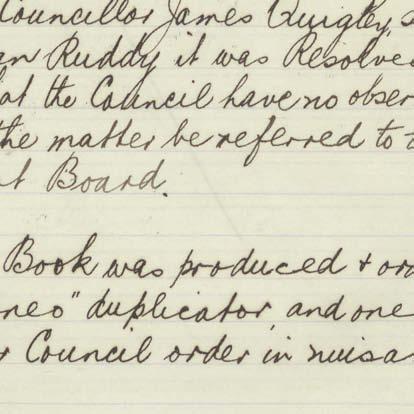 Councillor James Quigley, s
an Ruddy it was Resolve
at the Council have no obser
the matter be referred to
nt Board.
Book was produced & ord
neo" duplicator, and one
r Council order in nuisa